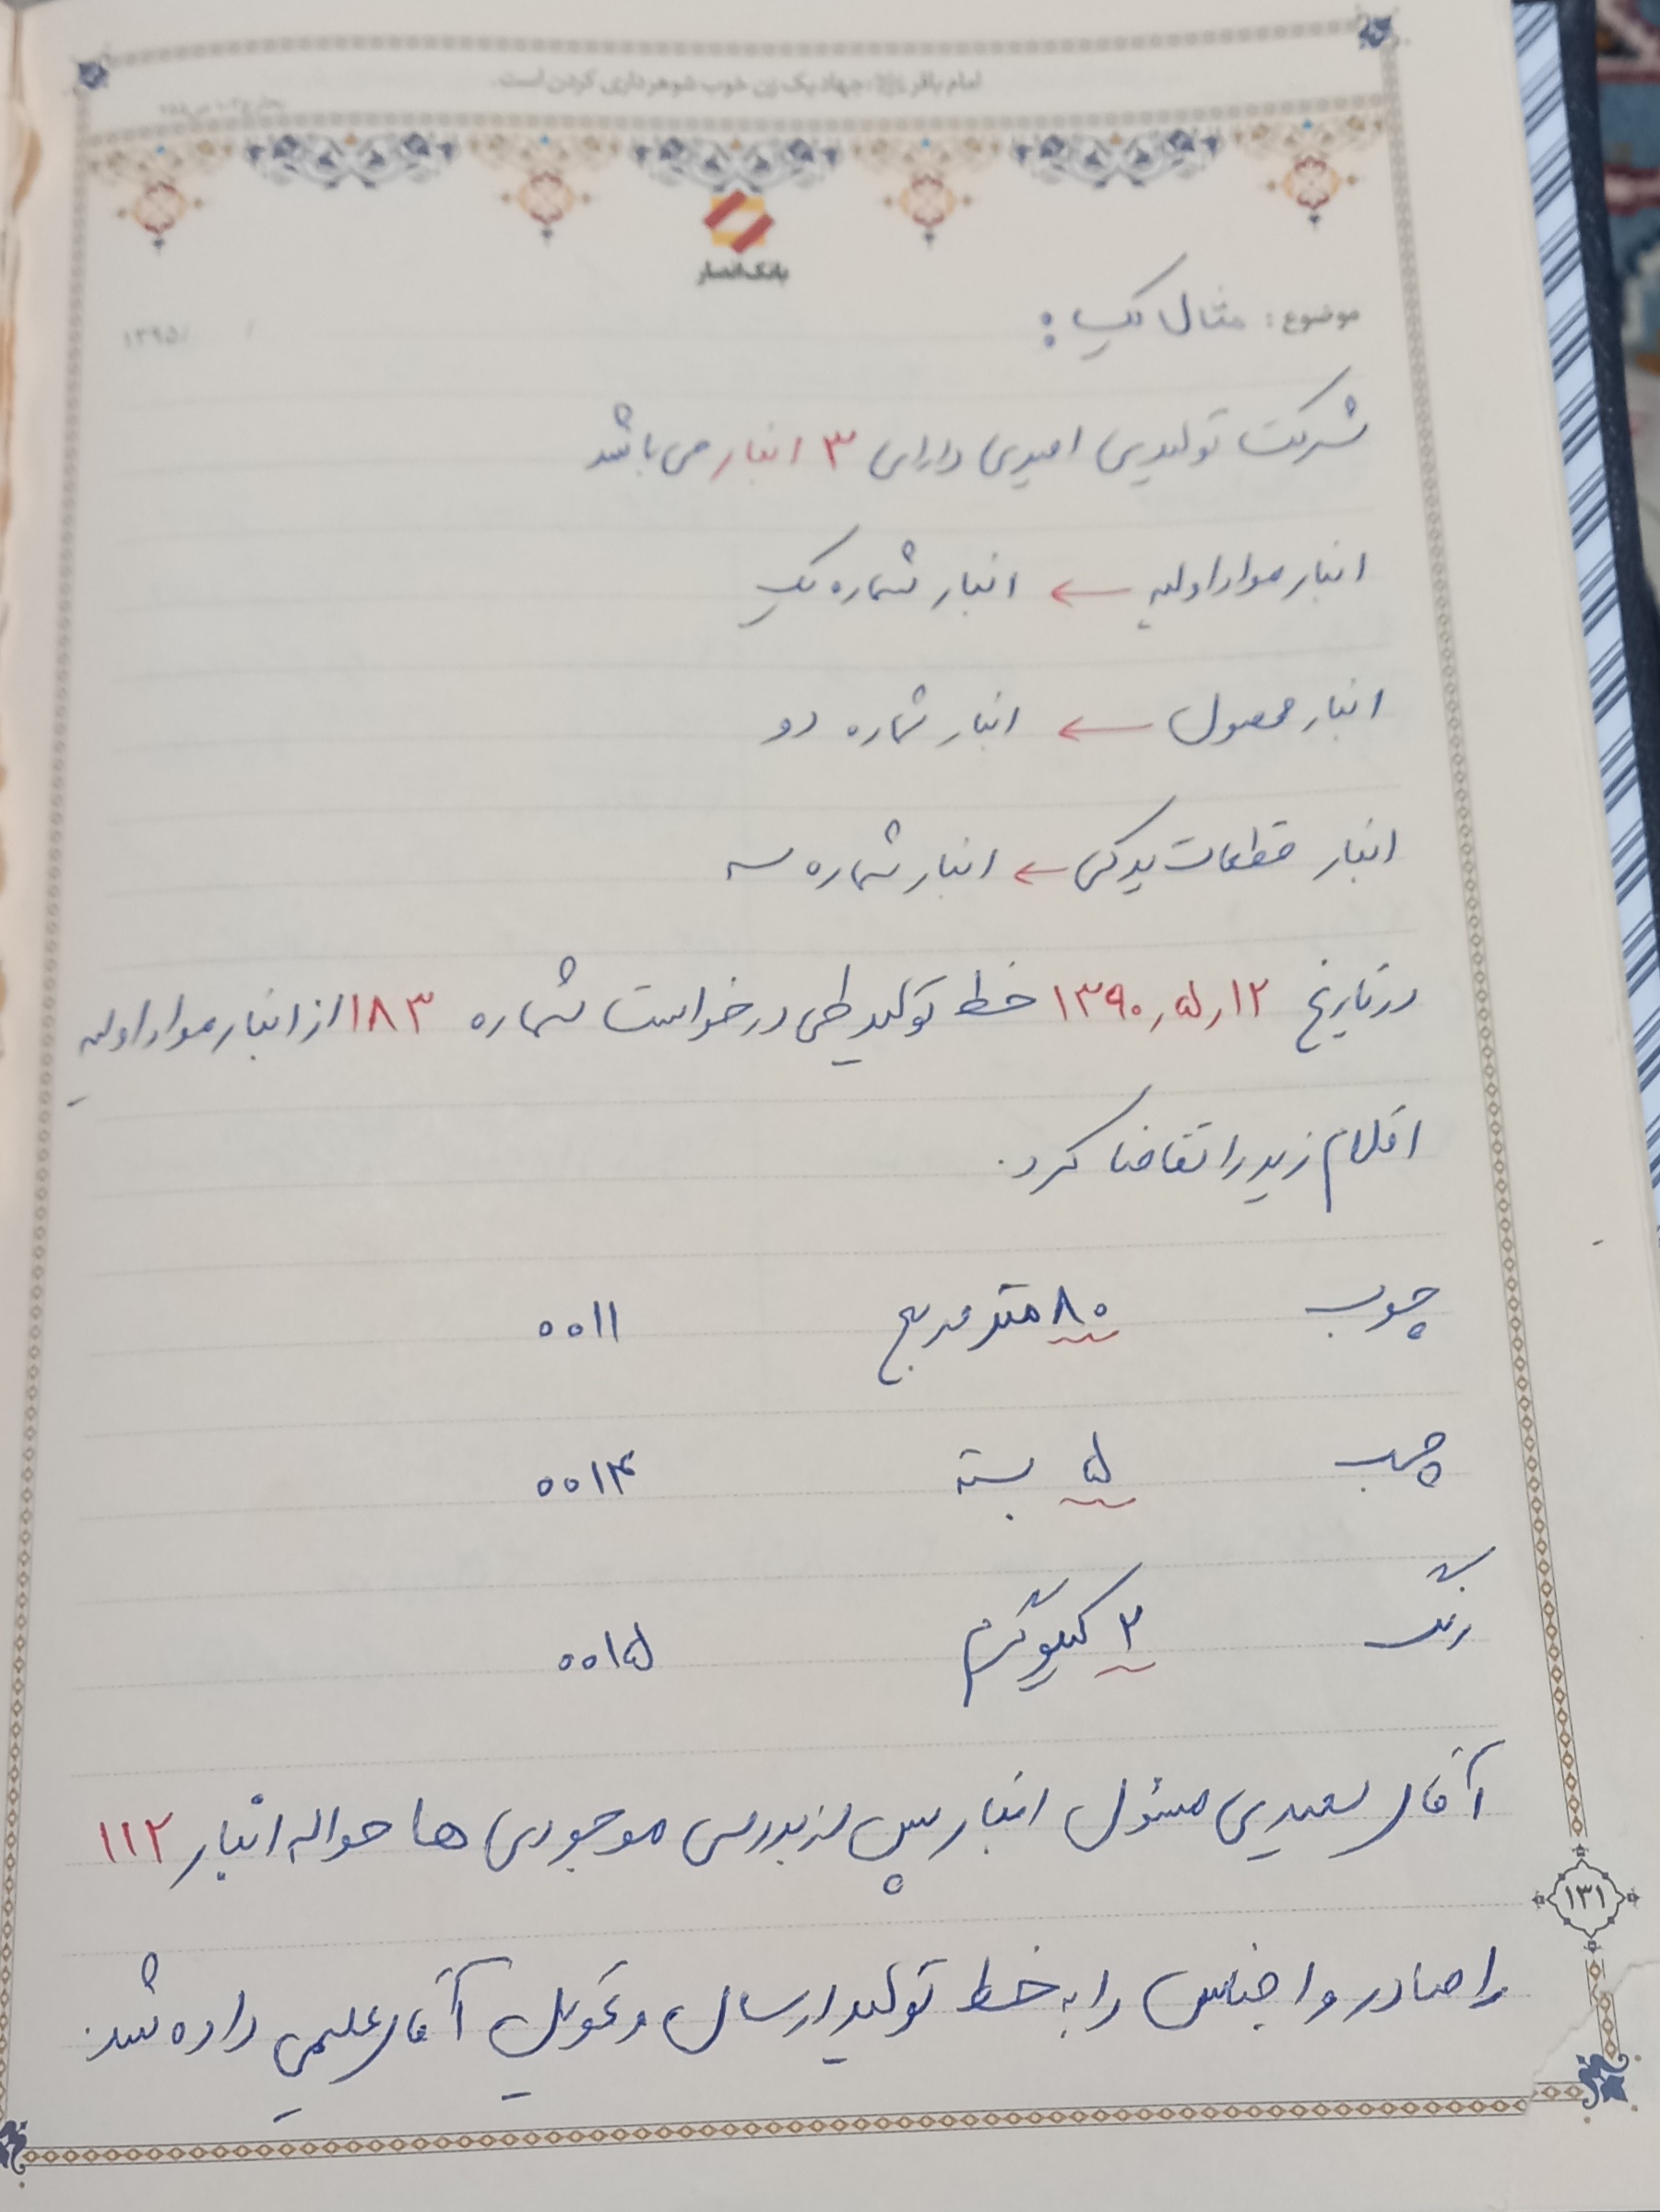 امام باقر : جهاد یک زن خوب شوهرداری کردن است.
بانک انصار
موضوع: مثال یک :
/ /۱۳۹۵
شرکت تولیدی امیدی دارای ۳ انبار می باشد
انبار مواد اولیه ← انبار شماره یک
انبار محصول ← انبار شماره دو
انبار قطعات یدکی ← انبار شماره سه
در تاریخ ۱۳۹۰٫۵٫۱۲ خط تولید طی درخواست شماره ۱۸۳ از انبار مواد اولیه
اقلام زیر را تقاضا کرد.
چوب ۸۰ متر مربع ۰۰۱۱
چسب ۵ بسته ۰۰۱۴
رنگ ۲ کیلوگرم ۰۰۱۵
آقای سعیدی مسئول انبار پس از بررسی موجودی ها حواله انبار ۱۱۲
را صادر و اجناس را به خط تولید ارسال و تحویل آقای علیمی داده شد.
۱۳۱